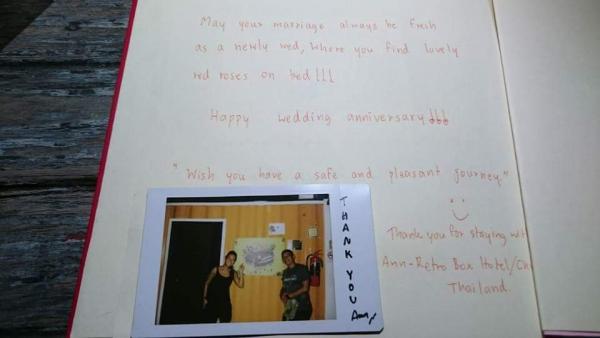 May your marriage always be fresh
as a newly wed, where you find lovely
red roses on bed!!!
Happy wedding anniversary!!!
"Wish you have a safe and pleasant journey."
Thank you for staying
Ann-Retro Box Hotel/
Thailand.
THANK YOU
Ann